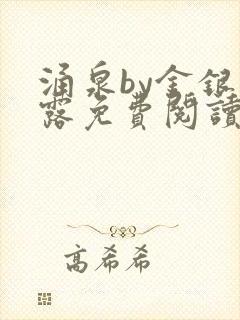 涌泉by金銀
露免費閱讀
高希希